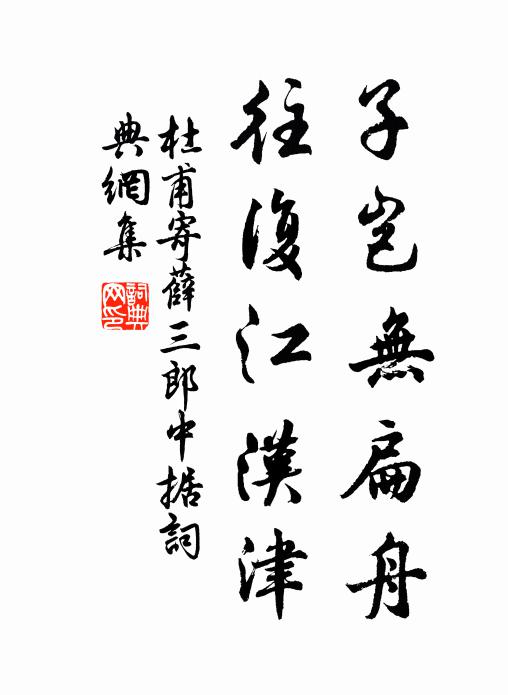 子岂無扁舟
往復江漢津
杜甫寄薛三郎中据詞
典網集
詞典
网印